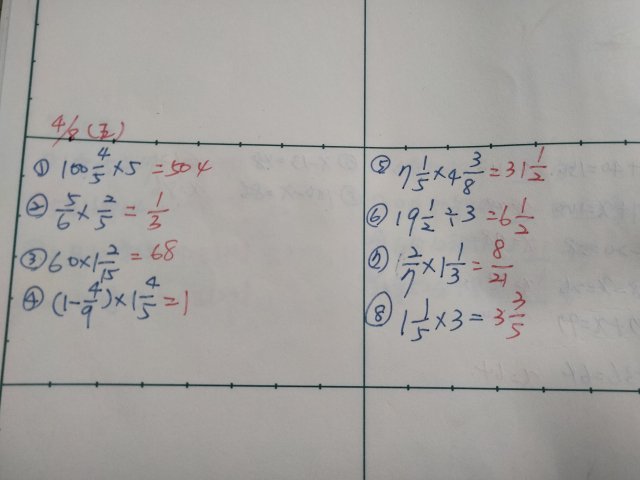 4/8 (五)
① 100 4/5 × 5 = 504
② 5/6 × 2/5 = 1/3
③ 60 × 1 2/15 = 68
④ (1 - 4/9) × 1 4/5 = 1
⑤ 7 1/5 × 4 3/8 = 31 1/2
⑥ 19 1/2 ÷ 3 = 6 1/2
⑦ 1 2/7 × 1 1/3 = 8/21
⑧ 1 1/5 × 3 = 3 3/5